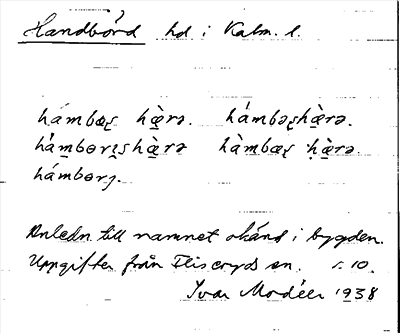 Handbörd hd i Kalm. l.
hámbœʂ hæ̀rə. hámbəʂhæ̀rə.
hámbɵrɪʂhæ̀rə hàmbœʂ hæ̀rə.
hámbɵrɟ.
Anledn till namnet okänd i bygden.
Uppgifter från Fliseryds sn. s. 10.
Ivar Modéer 1938